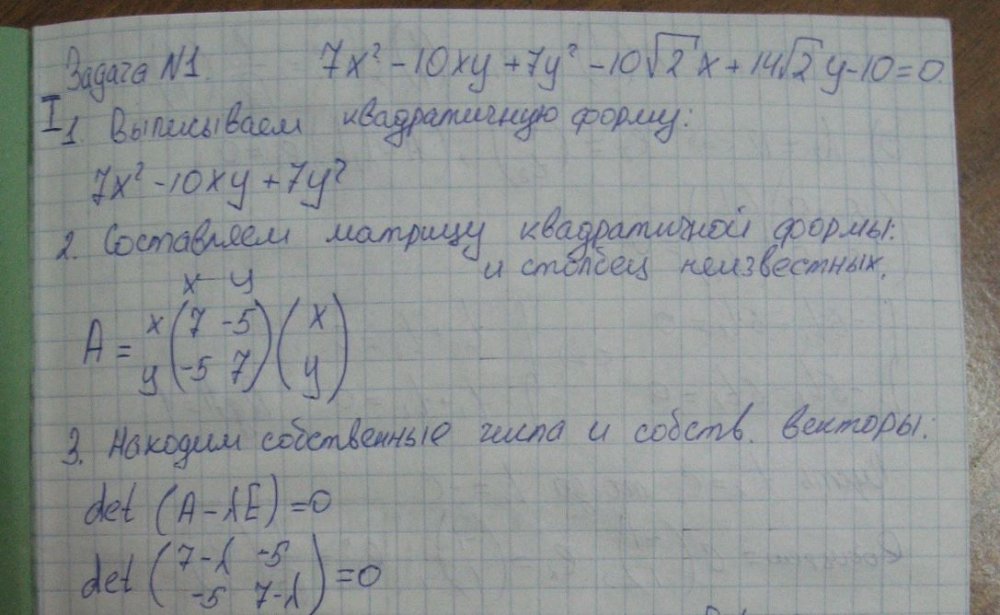 Задача №1. 7x² - 10xy + 7y² - 10√2 x + 14√2 y - 10 = 0
I
1. Выписываем квадратичную форму:
7x² - 10xy + 7y²
2. Составляем матрицу квадратичной формы:
и столбец неизвестных.
x y
A = x (7 -5) (x)
y (-5 7) (y)
3. Находим собственные числа и собств. векторы:
det (A - λE) = 0
det (7-λ -5
-5 7-λ) = 0